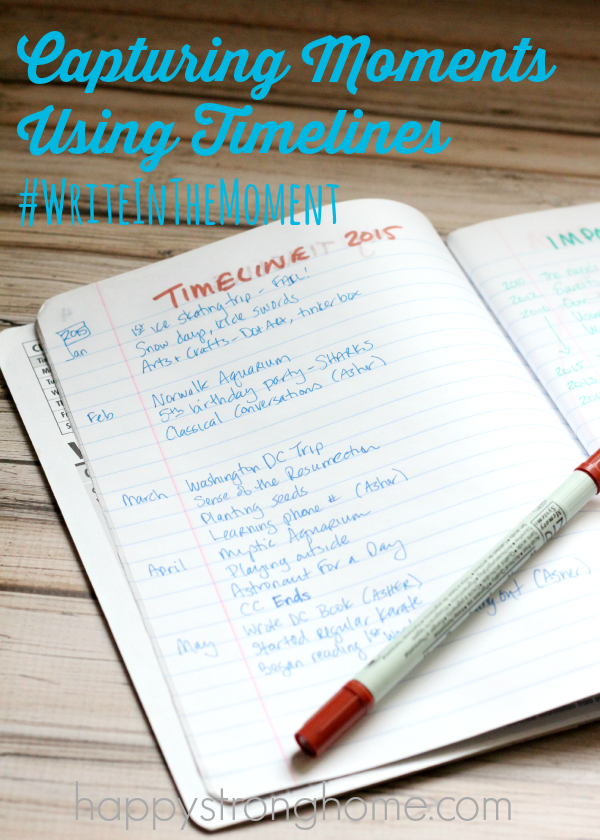 Capturing Moments
Using Timelines
#WriteInTheMoment
TIMELINE 2015
2015
Jan
1st Ice skating trip - FALL!
Snow days, swords
Arts + Crafts - Dot Art, tinkerbox
Feb
Norwalk Aquarium
5th birthday party - SHARKS
Classical Conversations (Asher)
March
Washington DC Trip
Sense of the Resurrection
Planting seeds
Learning phone # (Asher)
April
Mystic Aquarium
Playing outside
Astronaut For a Day
CC Ends
May
Wrote DC Book (ASHER)
Started Regular Karate
Began reading 1st out (Asher)
IMPO
happystronghome.com